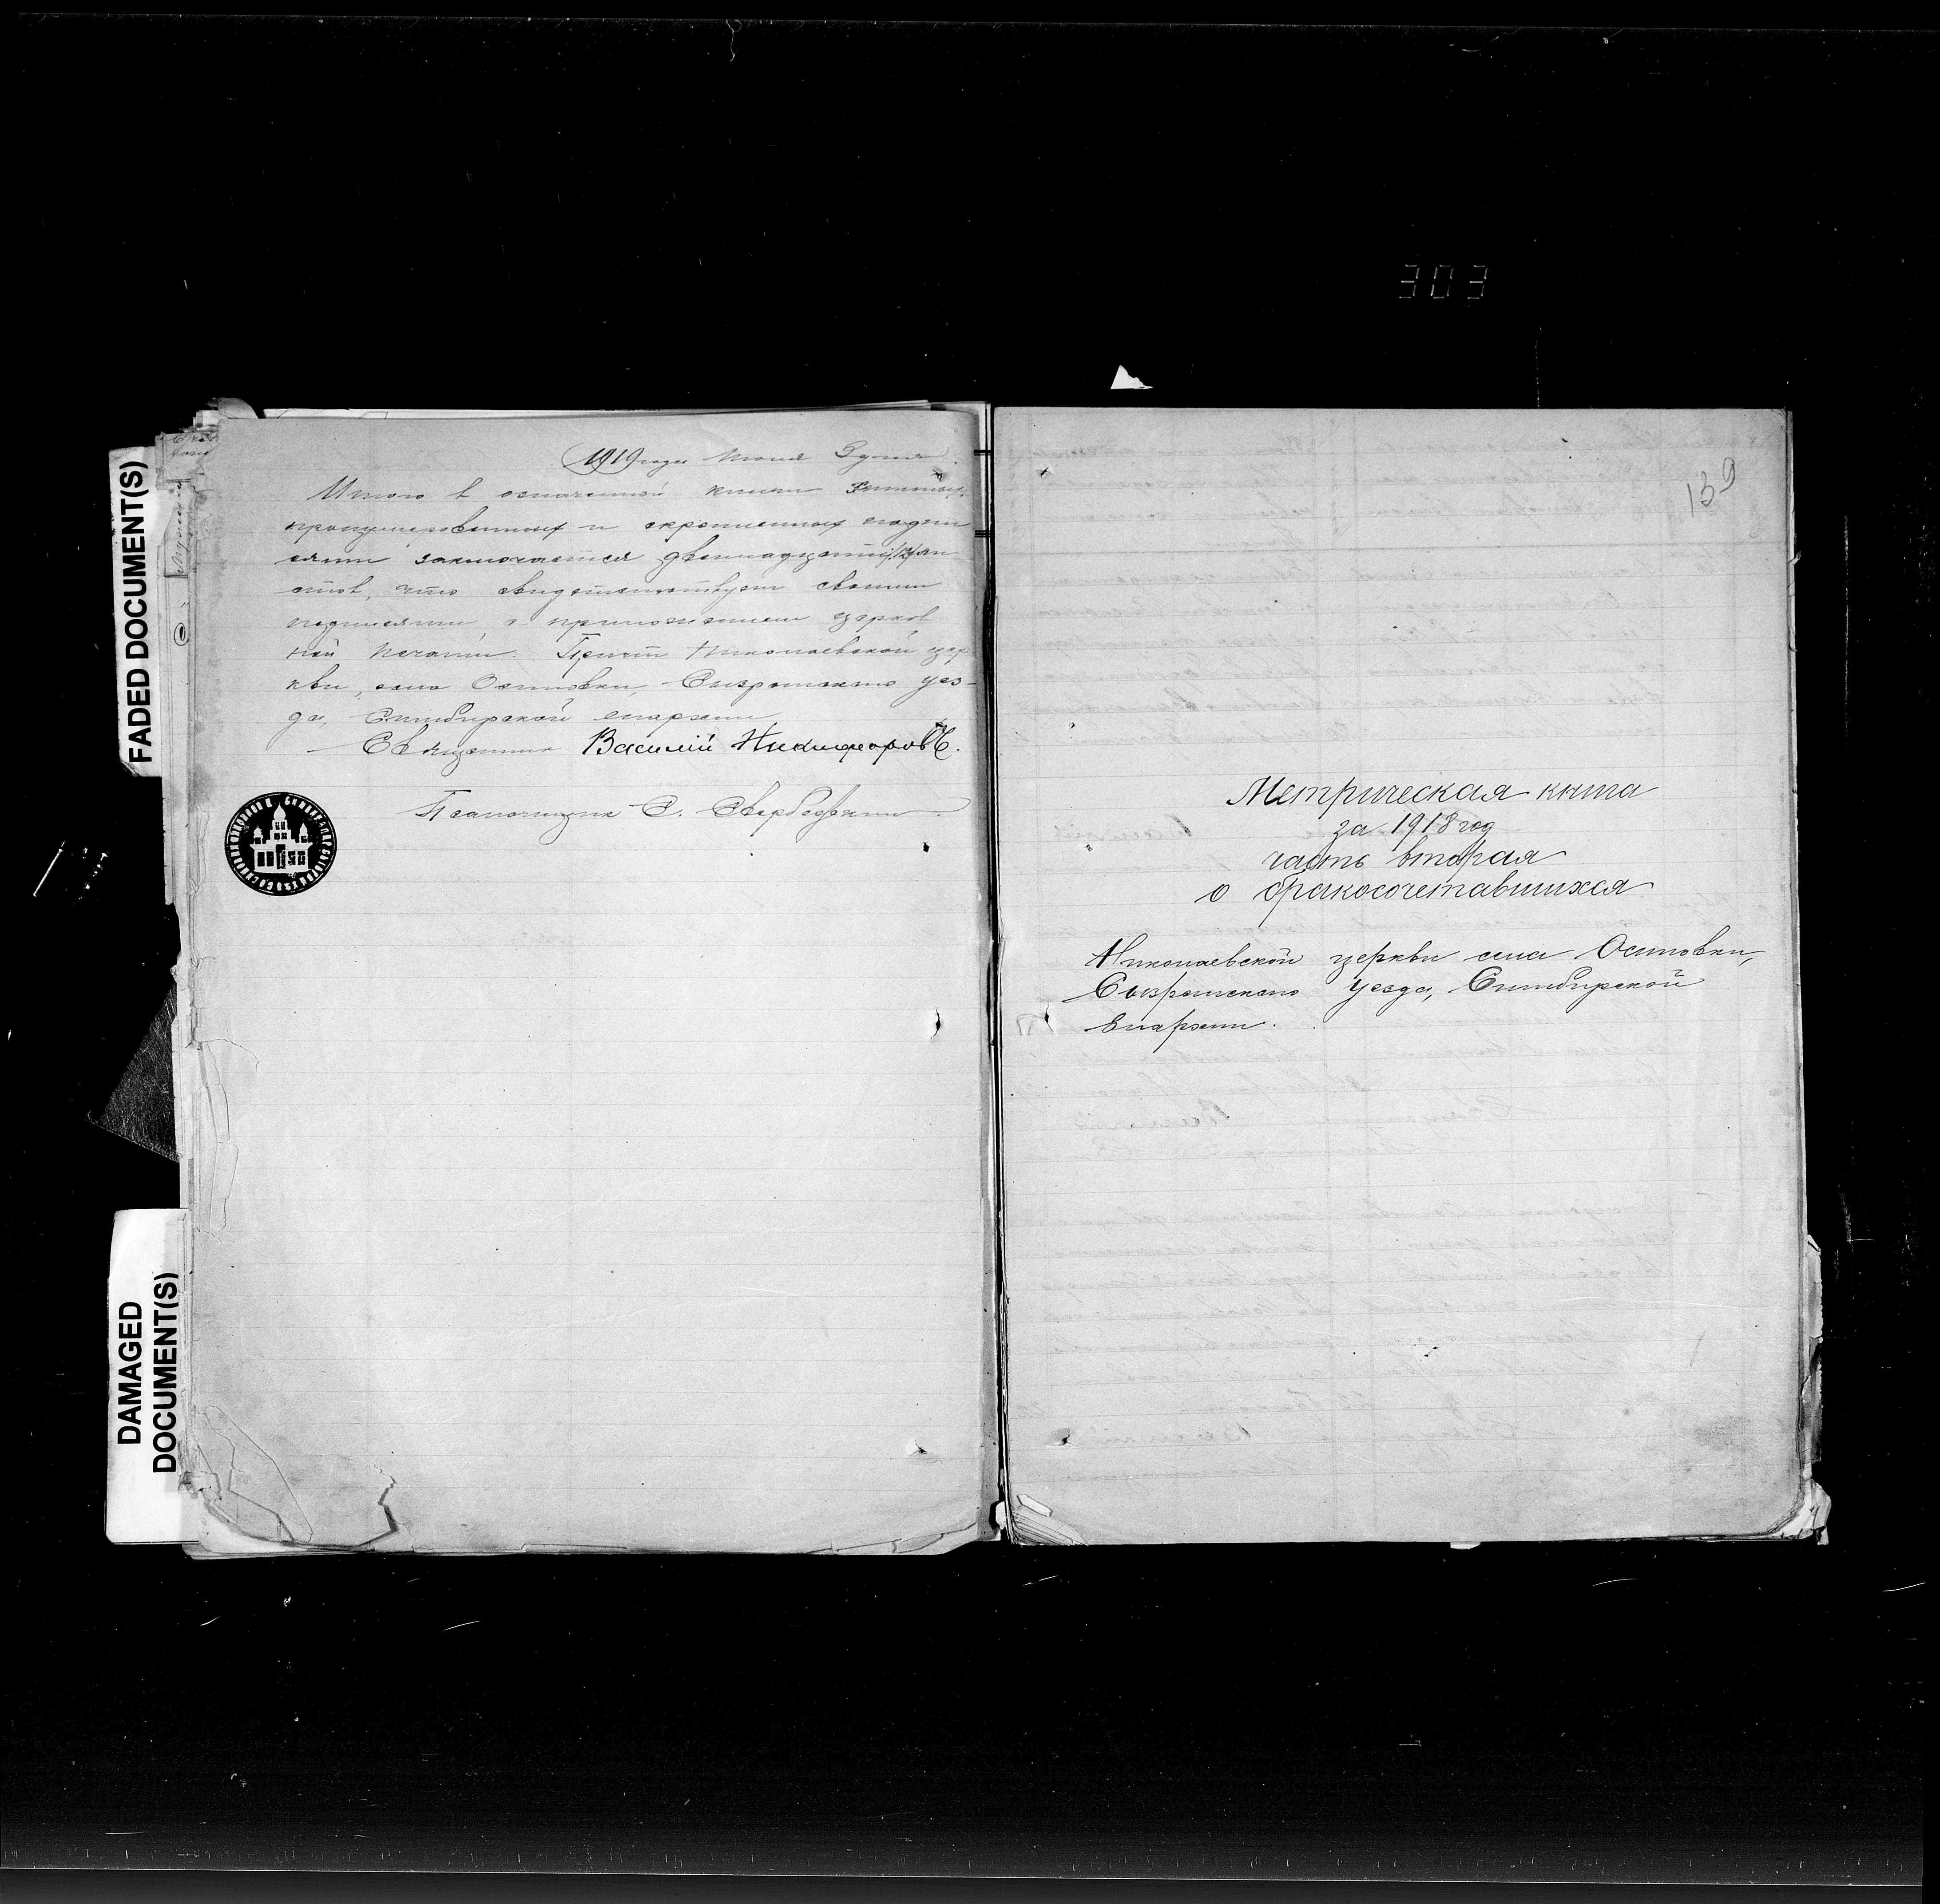 303
FADED DOCUMENT(S)
1919 года Июня 3 дня.
Итого в означенной книге
пронумерованных и скрепленных подпи
сями заключается двенадцать /12/ ли
стов, что свидетельствуем своими
подписями с приложением церков
ной печати. Причт Николаевской цер
кви, села Осиповки, Сызранского уез-
да, Симбирской епархии
Священник Василий Никифоровъ.
Псаломщик С.
DAMAGED
DOCUMENT(S)
139
Метрическая книга
за 1918 год
часть вторая
о бракосочетавшихся
Николаевской церкви села Осиповки,
Сызранского уезда, Симбирской
епархии.